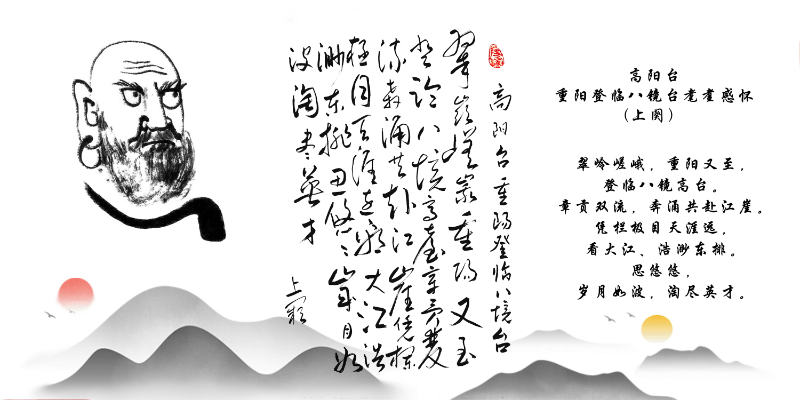 高阳台重阳登临八境台
翠岭嵯峨重阳又至
登临八境高台章贡双
流奔涌共赴江崖凭栏
极目天涯远看大江浩
渺东排思悠悠岁月如
波淘尽英才
上阕
高阳台
重阳登临八镜台老崔感怀
（上阕）
翠岭嵯峨，重阳又至，
登临八镜高台。
章贡双流，奔涌共赴江崖。
凭栏极目天涯远，
看大江、浩渺东排。
思悠悠，
岁月如波，淘尽英才。